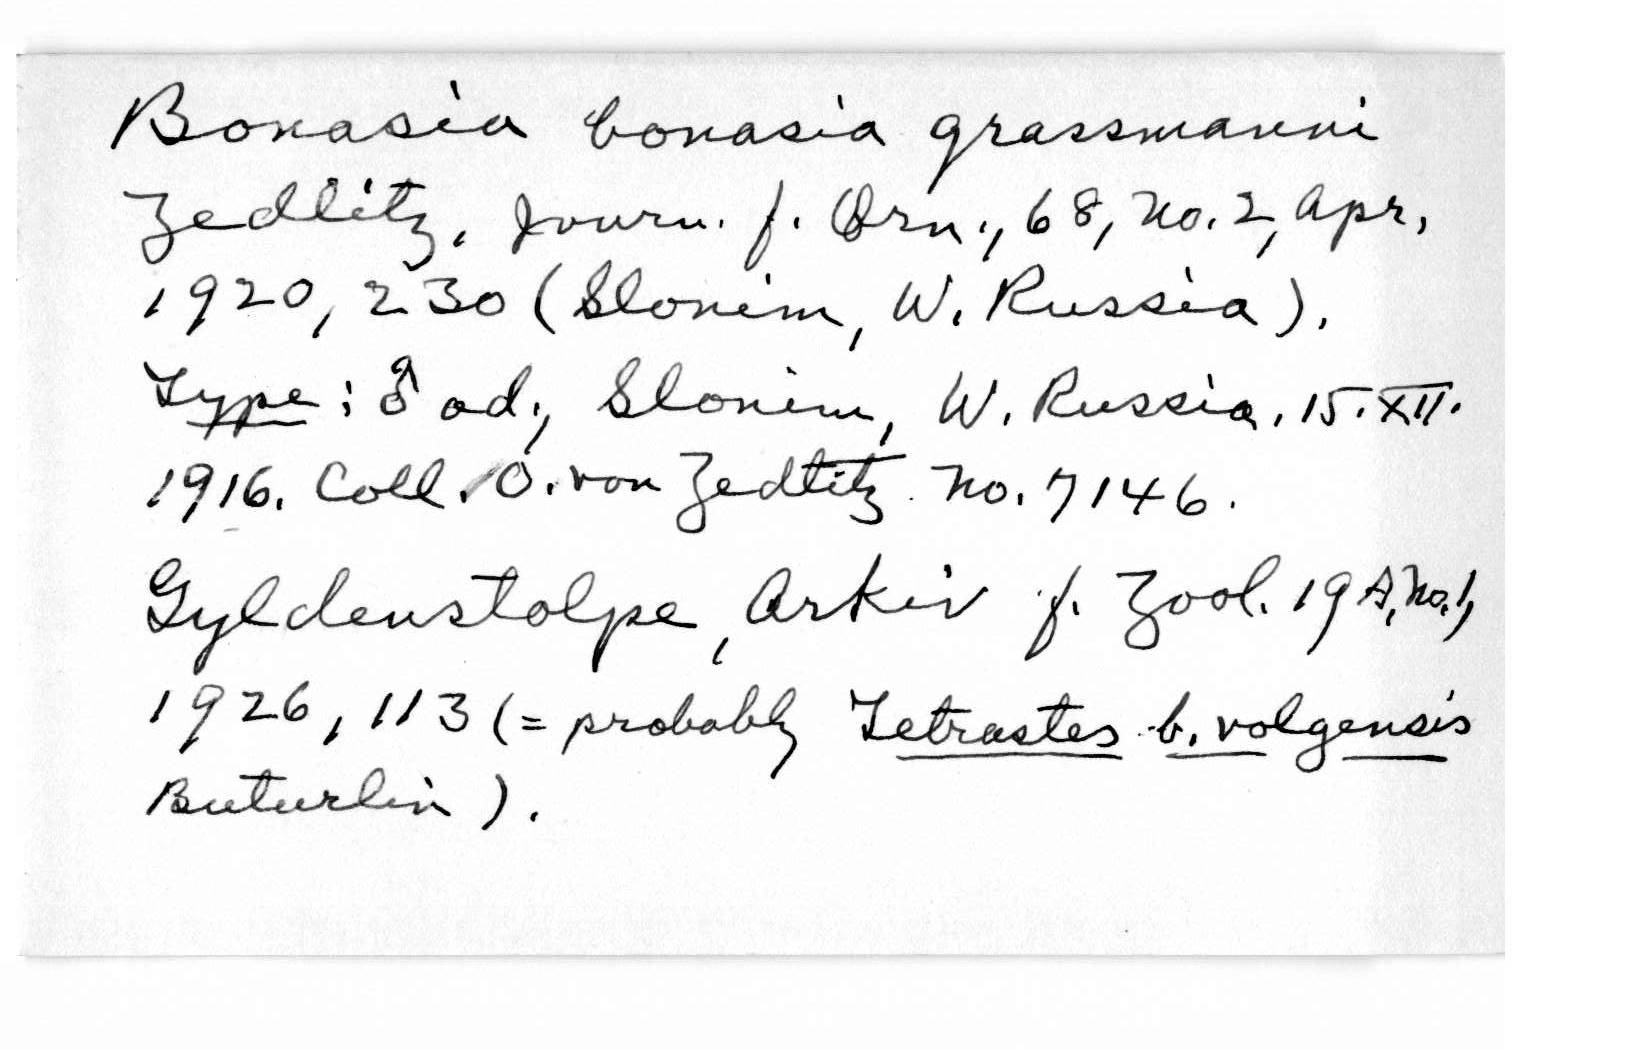 Bonasia bonasia grassmanni
Zedlitz, Journ. f. Orn., 68, No. 2, Apr.
1920, 230 (Slonim, W. Russia).
Type: ♂ ad., Slonim, W. Russia, 15.XII.
1916. Coll. O. von Zedlitz No. 7146.
Gyldenstolpe, Arkiv f. Zool. 19A, No. 1,
1926, 113 (= probably Tetrastes b. volgensis
Buturlin).